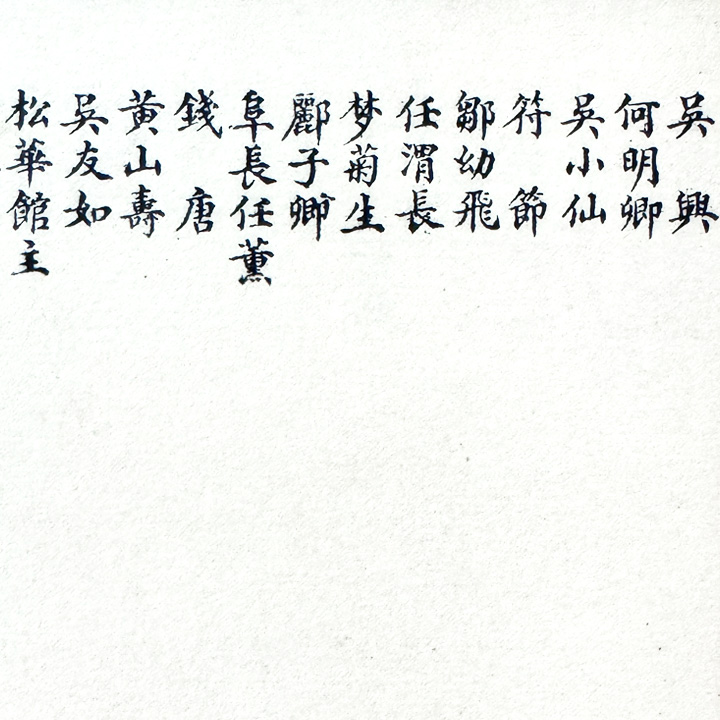 吳興
何明卿
吳小仙
符節
鄒幼飛
任渭長
梦菊生
酈子卿
阜長任薰
錢唐
黄山壽
吳友如
松華館主